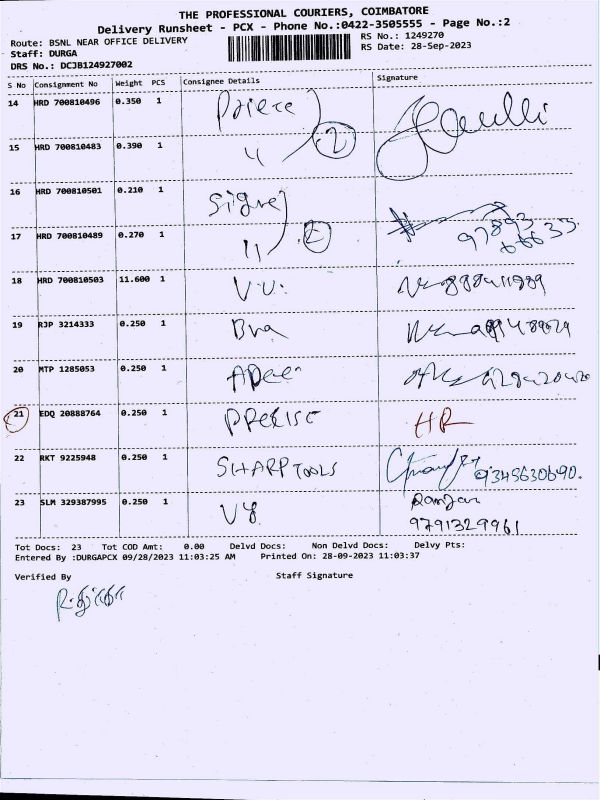 THE PROFESSIONAL COURIERS, COIMBATORE
Delivery Runsheet - PCX - Phone No.:0422-3505555 - Page No.:2
Route: BSNL NEAR OFFICE DELIVERY
RS No.: 1249270
Staff: DURGA
RS Date: 28-Sep-2023
DRS No.: DCJB124927002
S No Consignment No Weight PCS Consignee Details Signature
14 HRD 700810496 0.350 1
15 HRD 700810483 0.390 1 " 2
16 HRD 700810501 0.210 1
17 HRD 700810489 0.270 1 "
18 HRD 700810503 11.600 1 V.V.
19 RJP 3214333 0.250 1
20 MTP 1285053 0.250 1
21 EDQ 20888764 0.250 1 PRECISE HR
22 RKT 9225948 0.250 1 SHARP TOOLS 9345630690.
23 SLM 329387995 0.250 1
9791329961
Tot Docs: 23 Tot COD Amt: 0.00 Delvd Docs: Non Delvd Docs: Delvy Pts:
Entered By :DURGAPCX 09/28/2023 11:03:25 AM Printed On: 28-09-2023 11:03:37
Verified By Staff Signature